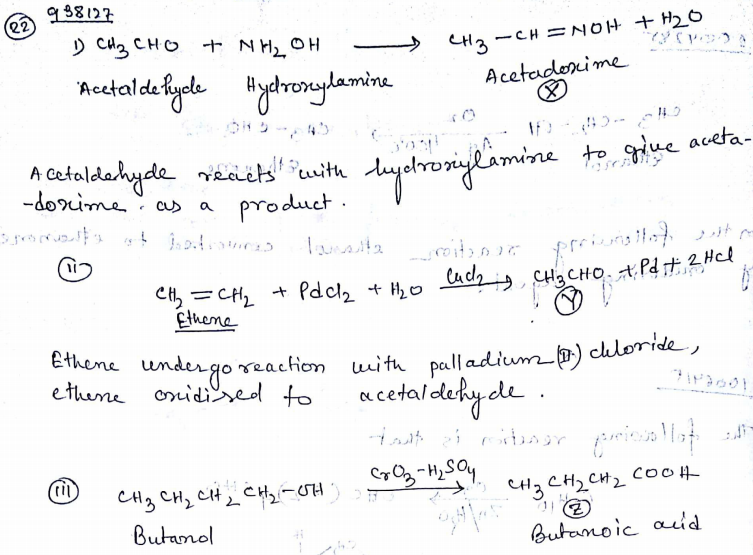 22 938127
1) CH3CHO + NH2OH ⟶ CH3-CH=NOH + H2O
Acetaldehyde Hydroxylamine Acetadoxime
X
Acetaldehyde reacts with hydroxylamine to give aceta-
-doxime. as a product.
ii
CH2=CH2 + PdCl2 + H2O CuCl2⟶ CH3CHO + Pd + 2HCl
Ethene Y
Ethene undergo reaction with palladium (II) chloride,
ethene oxidised to acetaldehyde.
iii CH3CH2CH2CH2-OH CrO3-H2SO4⟶ CH3CH2CH2COOH
Z
Butanol Butanoic acid